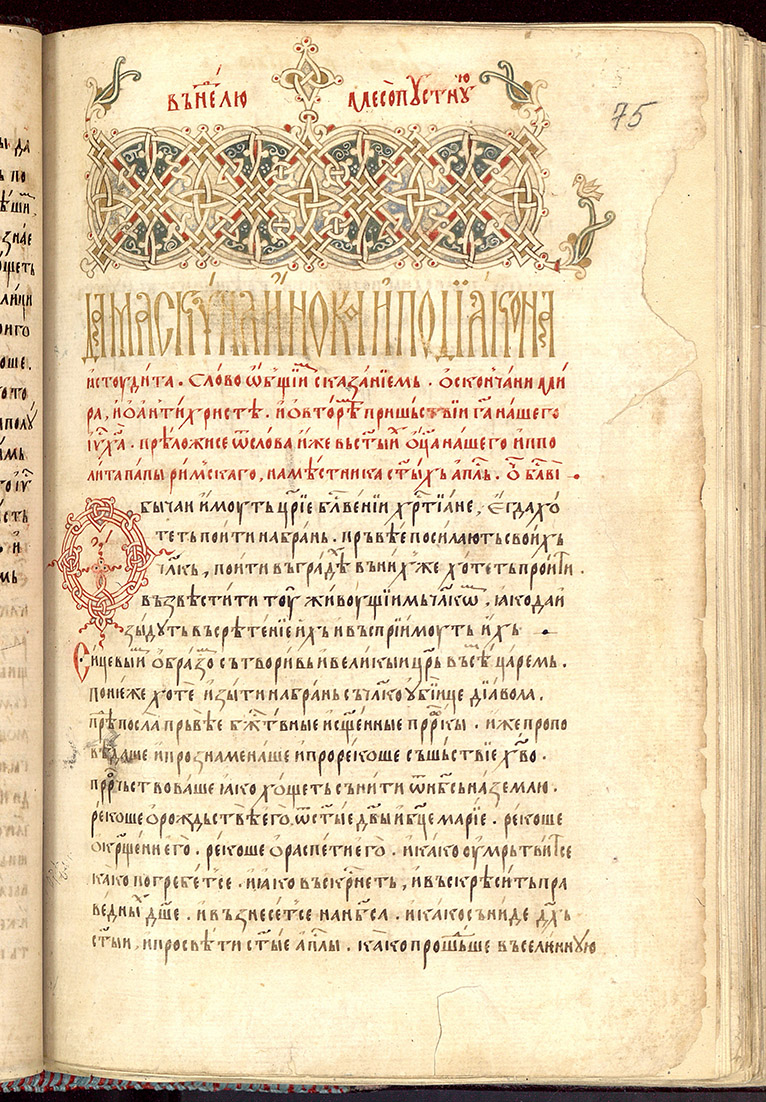 въ нелю месопустнꙋю
75
Дамаскина инока и подіакона
истоудита. Слово ѡбщїи сказанїемь. о скончани ми
ра, и о антихристѣ. и о вторѣ пришьствїи га нашего
іѵ҃ х҃а. прѣложисе ѿ слова иже вь ст҃ыи ѡ҃ца нашего иппо
лита папы римскаго, намѣстника ст҃ыхь ап҃ль. ѡ҃ бл҃ви
Ѡбычаи имоуть цр҃їе бл҃венїи хр҃тїане, Егда хо
теть поити на брань. прьвѣе посилають своихь
чл҃кь, поити вь градѣ вь нихже хотеть проити.
възвѣстити тоу живоущїимь чл҃кѡ, іако да и
зыдуть въ срѣтенїе ихь и въспрїимоуть ихь
Сицевыи ѡбразо сътвори вь и великыи цр҃ь въсѣ царемь.
понеже хоте изыти на брань съ чл҃коубїице дїавола.
прѣпосла прьвѣе бж҃твные и сщ҃енные пр҃ркы. иже пропо
вѣдаше и прознаменаше и прорекоше съшьствїе хв҃о.
пр҃рчьствоваше іако хощеть сънити ѿ нб҃сь на землю.
рекоше о рождьствѣ его, ѿ ст҃ые дв҃ы и бц҃е марїе. рекоше
о кр҃щени его. рекоше о распети его. и како оумрьтвитсе
како погребетсе. и іако въскрⷭ҇неть, и въскрѣсить пра
ведныⷯ дш҃е. и възнесетсе на нб҃са. и како съниде дх҃ь
ст҃ыи, и просвѣти ст҃ые ап҃лы. како прошьше въселинную